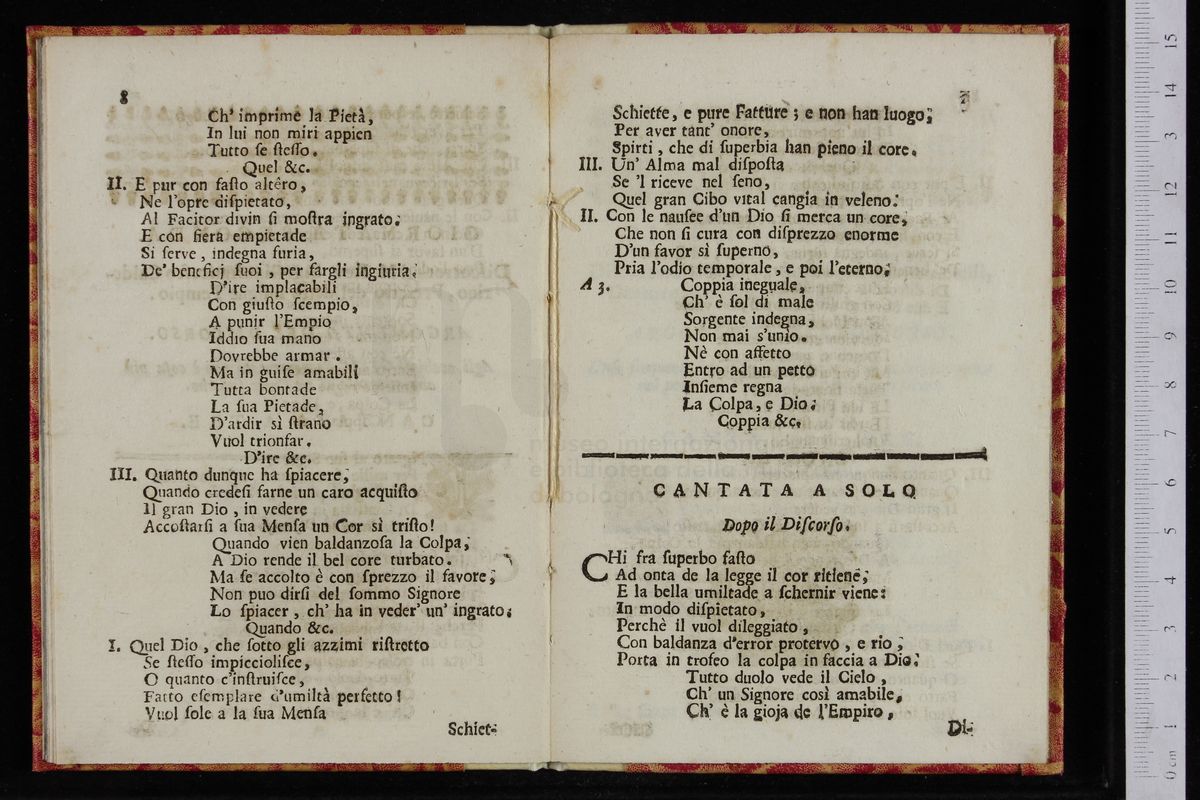 8
Ch' imprime la Pietà,
In lui non miri appien
Tutto ſe ſteſſo.
Quel &c.
II. E pur con faſto altéro,
Ne l'opre diſpietato,
Al Facitor divin ſi moſtra ingrato;
E con fiera empietade
Si ſerve, indegna furia,
De' beneficj ſuoi, per fargli ingiuria.
D'ire implacabili
Con giuſto ſcempio,
A punir l'Empio
Iddio ſua mano
Dovrebbe armar.
Ma in guiſe amabili
Tutta bontade
La ſua Pietade,
D'ardir sì ſtrano
Vuol trionfar.
D'ire &c.
III. Quanto dunque ha ſpiacere,
Quando credeſi farne un caro acquiſto
Il gran Dio, in vedere
Accoſtarſi a ſua Menſa un Cor sì triſto!
Quando vien baldanzoſa la Colpa,
A Dio rende il bel core turbato.
Ma ſe accolto è con ſprezzo il favore,
Non puo dirſi del ſommo Signore
Lo ſpiacer, ch' ha in veder' un' ingrato;
Quando &c.
I. Quel Dio, che ſotto gli azzimi riſtretto
Se ſteſſo impiccioliſce,
O quanto c'inſtruiſce,
Fatto eſemplare d'umiltà perfetto!
Vuol ſole a la ſua Menſa
Schiet-
Schiette, e pure Fatture; e non han luogo,
Per aver tant' onore,
Spirti, che di ſuperbia han pieno il core.
III. Un' Alma mal diſpoſta
Se 'l riceve nel ſeno,
Quel gran Cibo vital cangia in veleno.
II. Con le nauſee d'un Dio ſi merca un core,
Che non ſi cura con diſprezzo enorme
D'un favor sì ſuperno,
Pria l'odio temporale, e poi l'eterno;
A 3. Coppia ineguale,
Ch' è ſol di male
Sorgente indegna,
Non mai s'unio.
Nè con affetto
Entro ad un petto
Inſieme regna
La Colpa, e Dio;
Coppia &c.
CANTATA A SOLO
Dopo il Diſcorſo.
CHi fra ſuperbo faſto
Ad onta de la legge il cor ritiene,
E la bella umiltade a ſchernir viene:
In modo diſpietato,
Perchè il vuol dileggiato,
Con baldanza d'error protervo, e rio,
Porta in trofeo la colpa in faccia a Dio;
Tutto duolo vede il Cielo,
Ch' un Signore così amabile,
Ch' è la gioja de l'Empiro,
Di-
15
14
13
12
11
10
9
8
7
6
5
4
3
2
1
0 cm